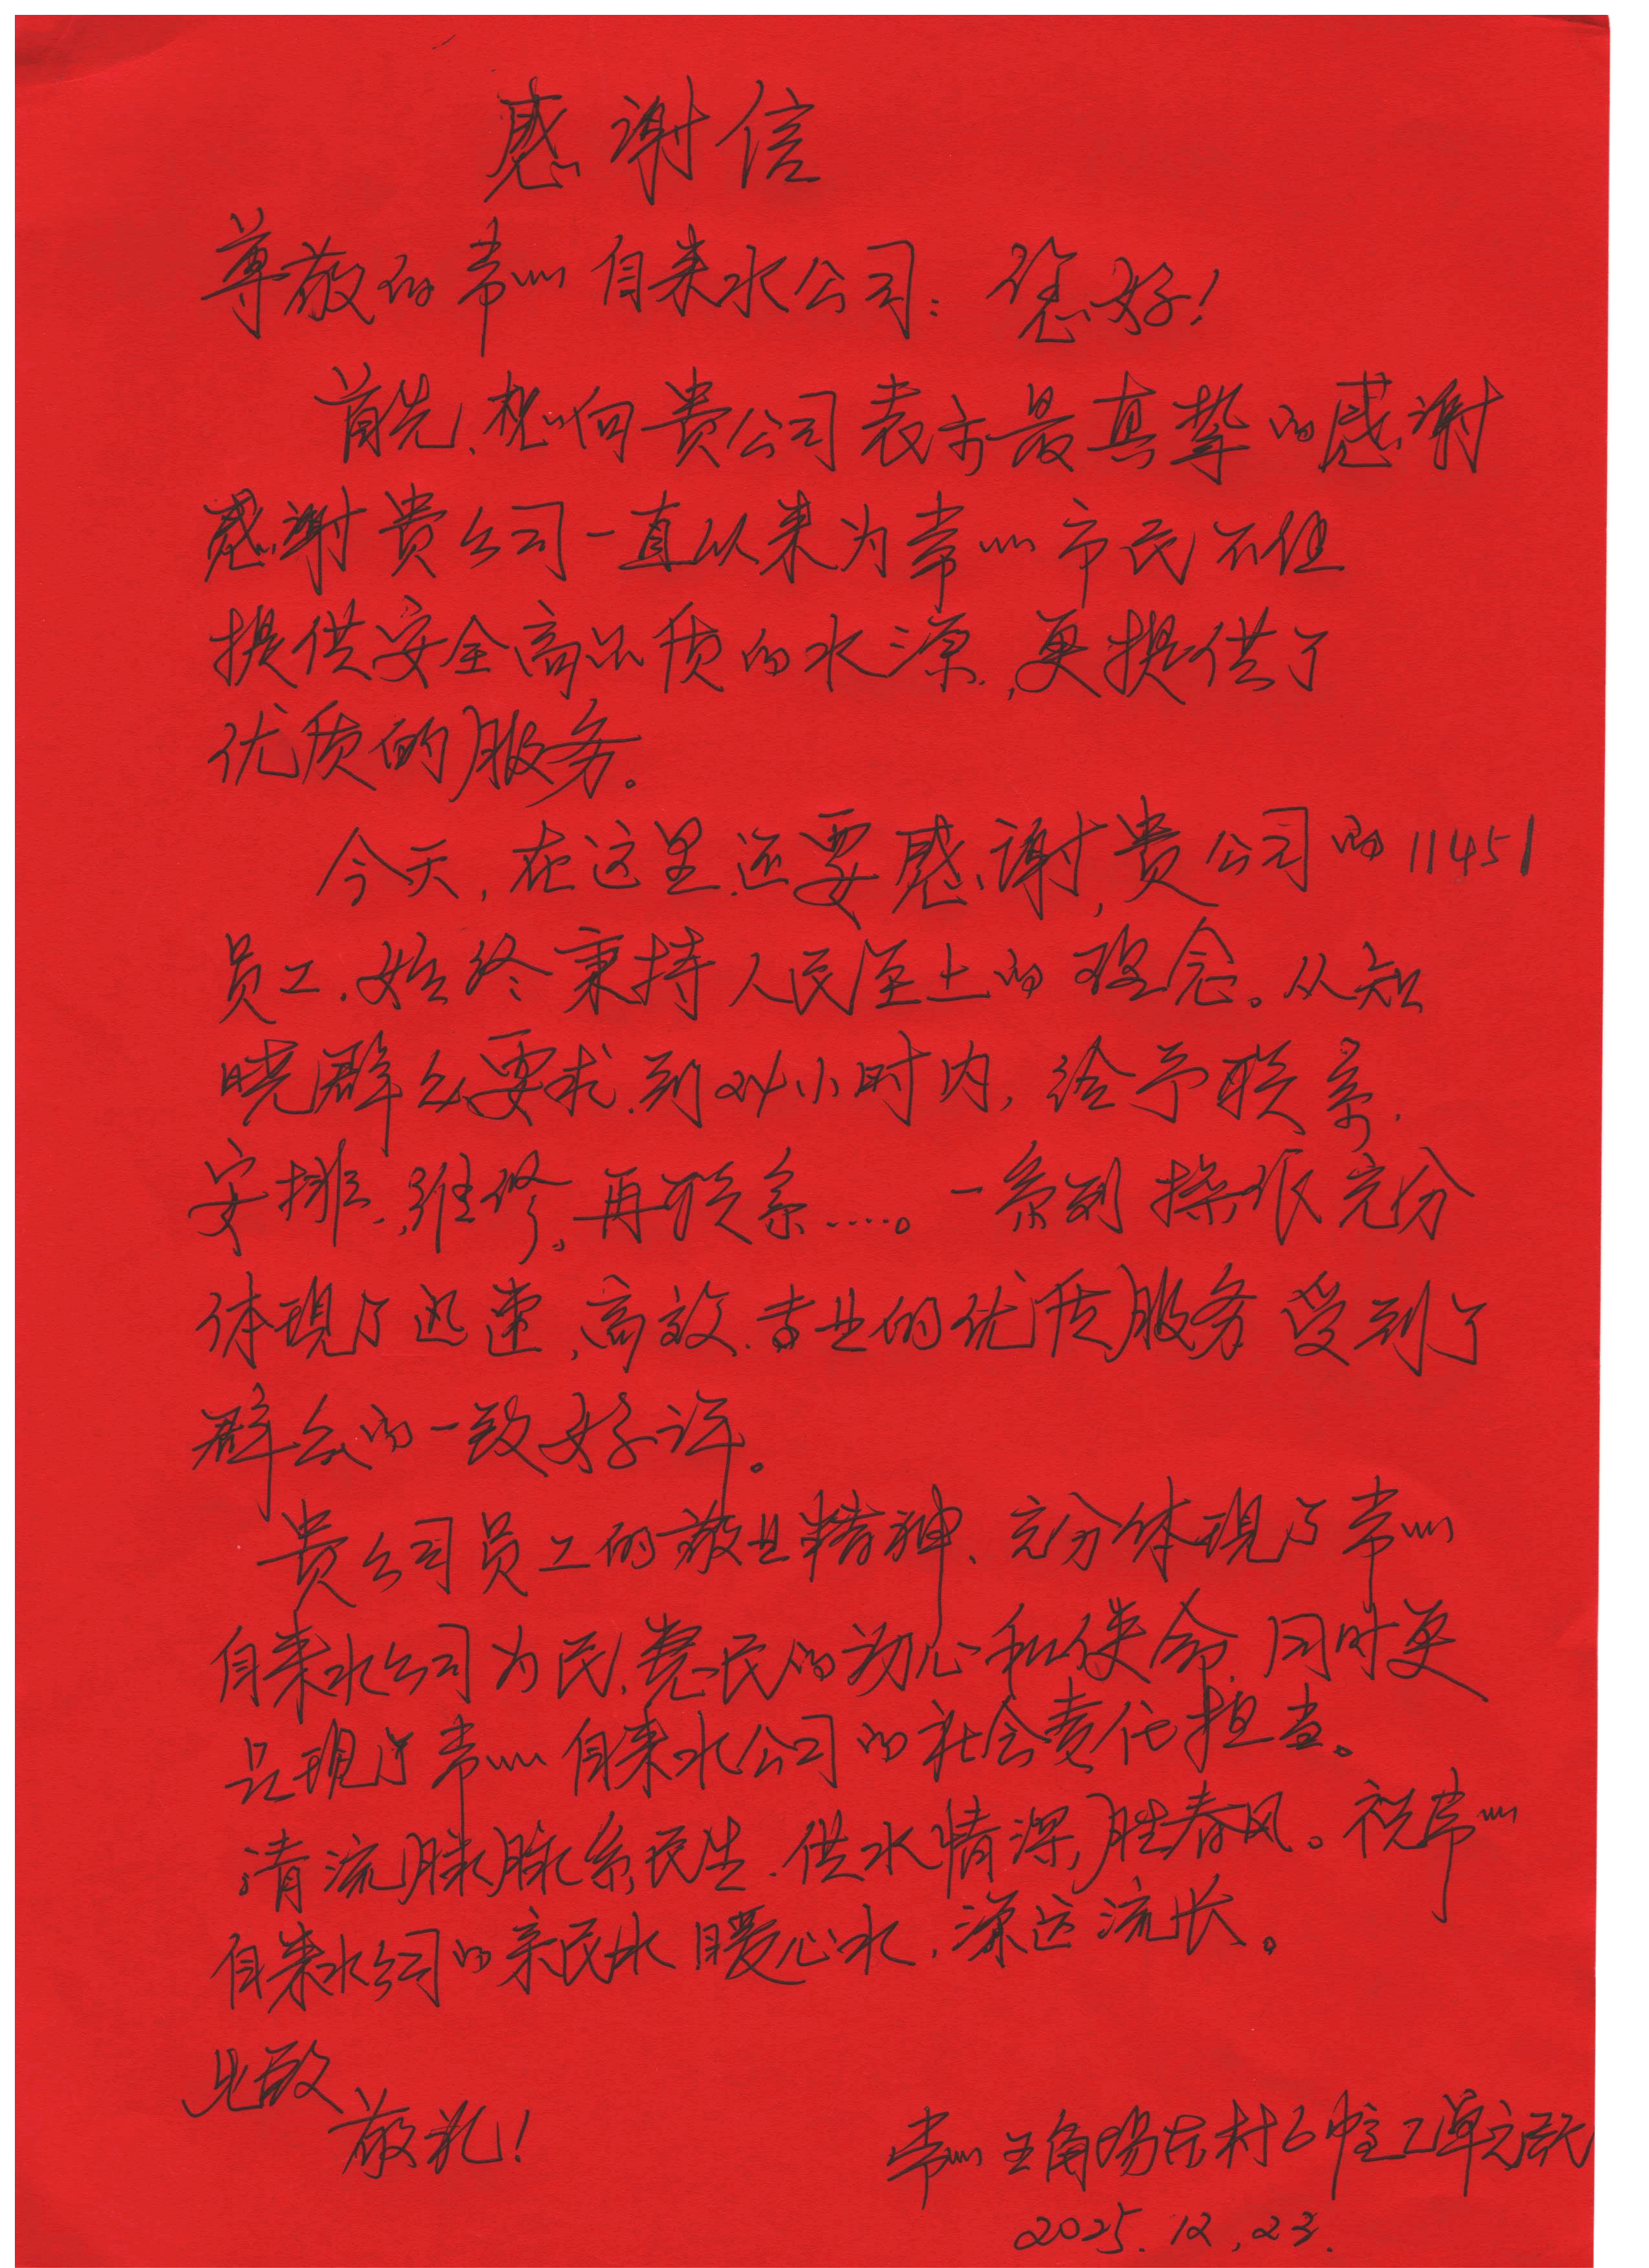 感谢信
尊敬的常州自来水公司：您好！
首先，想向贵公司表示最真挚的感谢
感谢贵公司一直以来为常州市民不但
提供安全高品质的水源，更提供了
优质的服务。
今天，在这里还要感谢，贵公司的11451
员工，始终秉持人民至上的理念。从知
晓群众要求，到24小时内，给予联系，
安排，维修，再联系……。一系列操作充分
体现了迅速，高效，专业的优质服务受到了
群众的一致好评。
贵公司员工的敬业精神、充分体现了常州
自来水公司为民，惠民的初心和使命，同时更
呈现了常州自来水公司的社会责任担当。
清流脉脉系民生，供水情深胜春风。祝常州
自来水公司的亲民水暖心水，源远流长。
此致
敬礼！
常州 角场 村 幢 单元
2025.12.23.